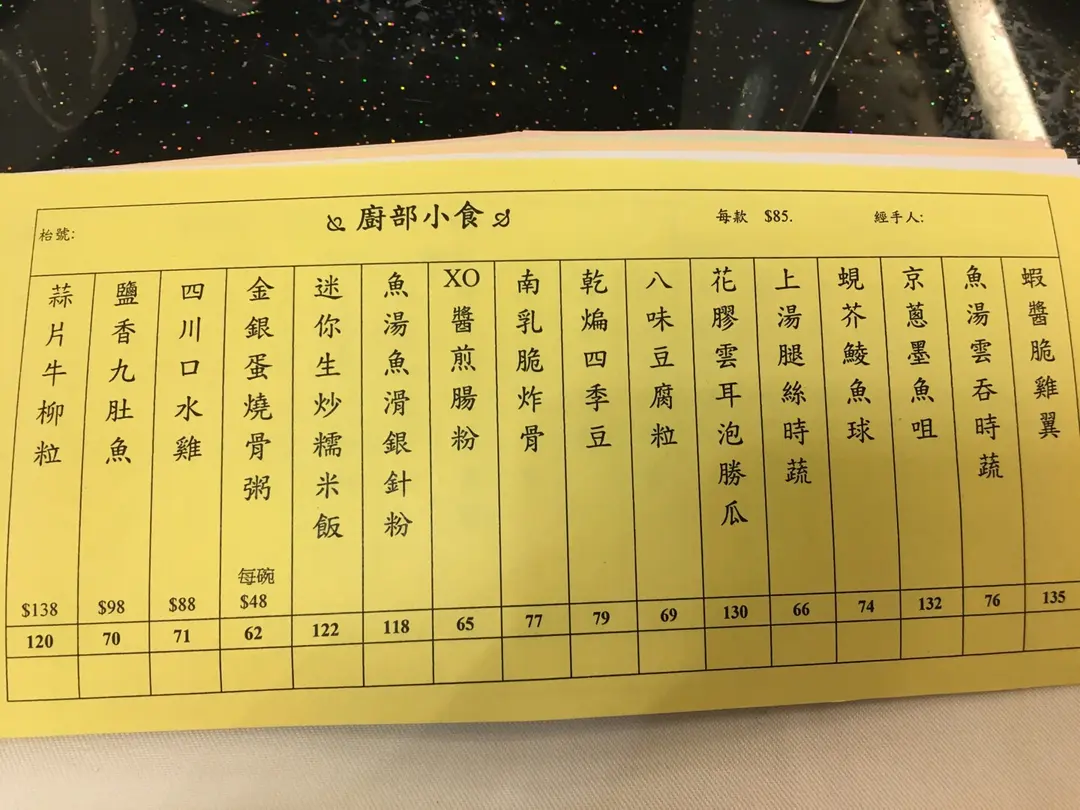 廚部小食
每款 $85.
經手人:
枱號:
蝦醬脆雞翼
135
魚湯雲吞時蔬
76
京蔥墨魚咀
132
蜆芥鯪魚球
74
上湯腿絲時蔬
66
花膠雲耳泡勝瓜
130
八味豆腐粒
69
乾煸四季豆
79
南乳脆炸骨
77
XO醬煎腸粉
65
魚湯魚滑銀針粉
118
迷你生炒糯米飯
122
金銀蛋燒骨粥
每碗
$48
62
四川口水雞
$88
71
鹽香九肚魚
$98
70
蒜片牛柳粒
$138
120